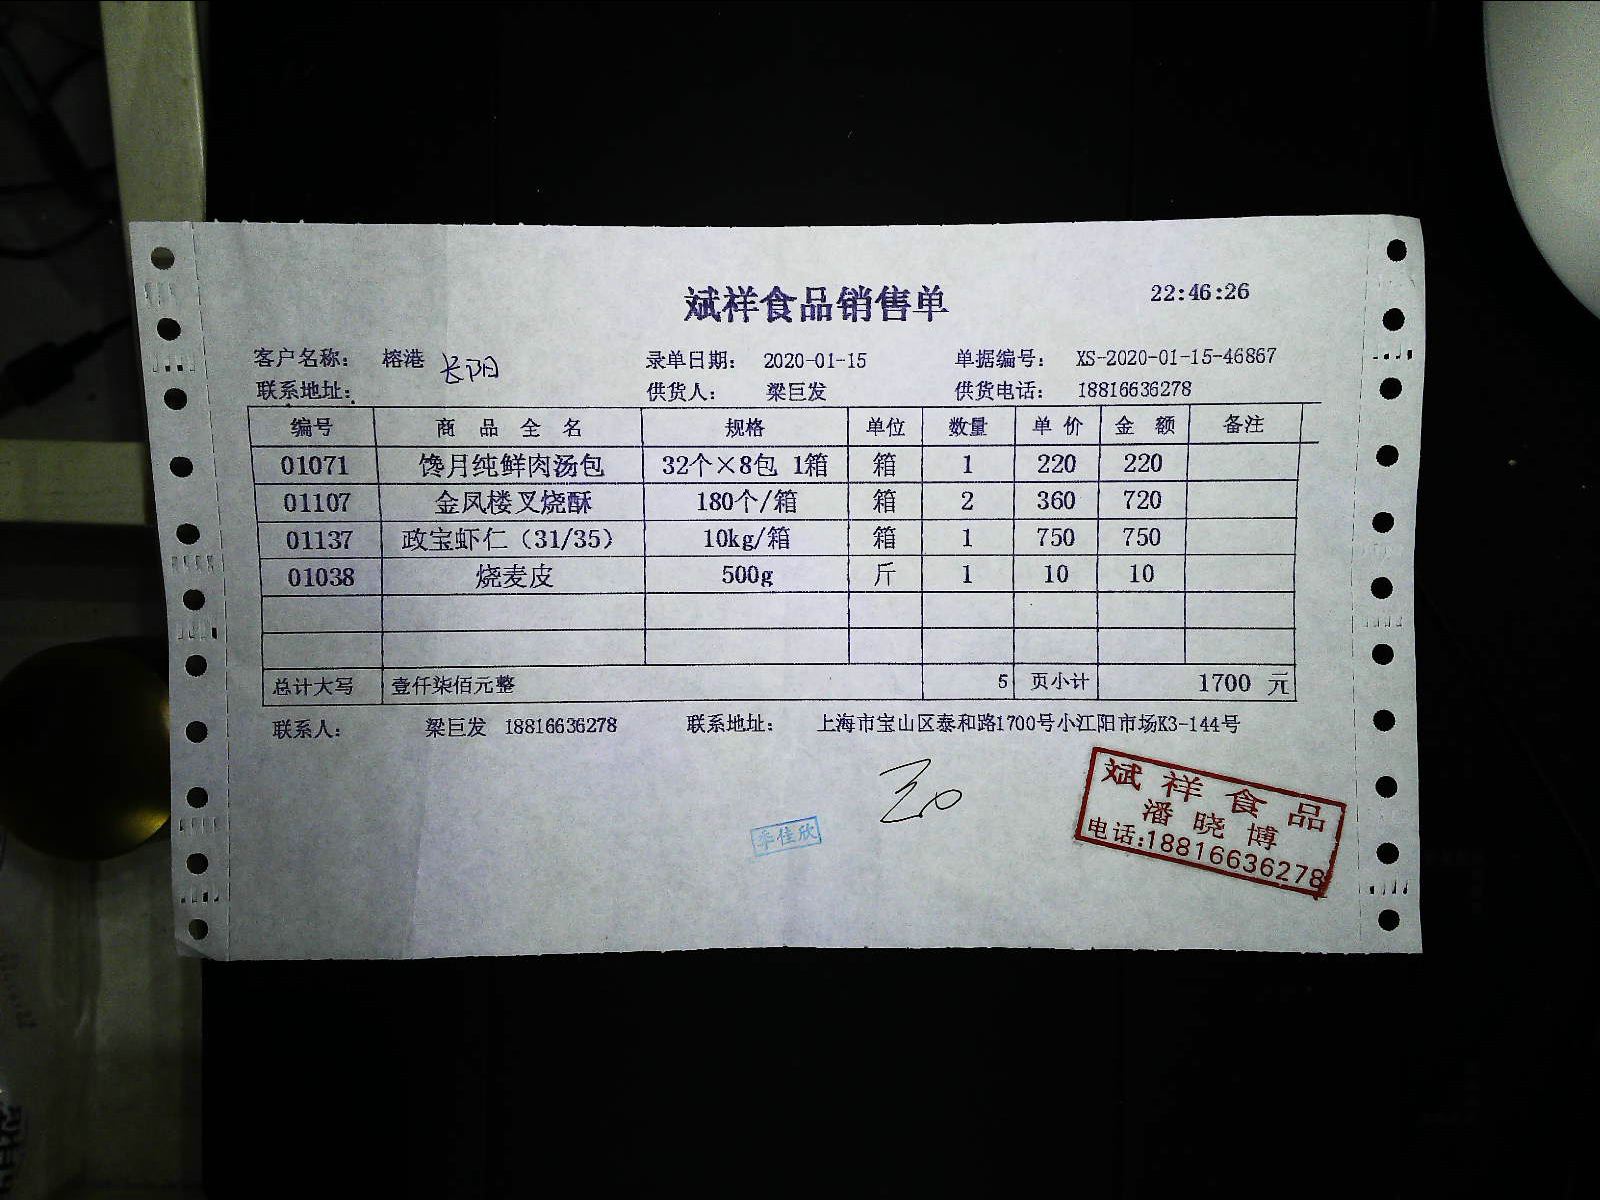 斌祥食品销售单 22:46:26
客户名称： 榕港 长阳 录单日期： 2020-01-15 单据编号： XS-2020-01-15-46867
联系地址： 供货人： 梁巨发 供货电话： 18816636278
编号 商品全名 规格 单位 数量 单价 金额 备注
01071 馋月纯鲜肉汤包 32个×8包 1箱 箱 1 220 220
01107 金凤楼叉烧酥 180个/箱 箱 2 360 720
01137 政宝虾仁（31/35） 10kg/箱 箱 1 750 750
01038 烧麦皮 500g 斤 1 10 10
总计大写 壹仟柒佰元整 5 页小计 1700 元
联系人： 梁巨发 18816636278 联系地址： 上海市宝山区泰和路1700号小江阳市场K3-144号
斌祥食品
潘晓博
电话:18816636278
李佳欣